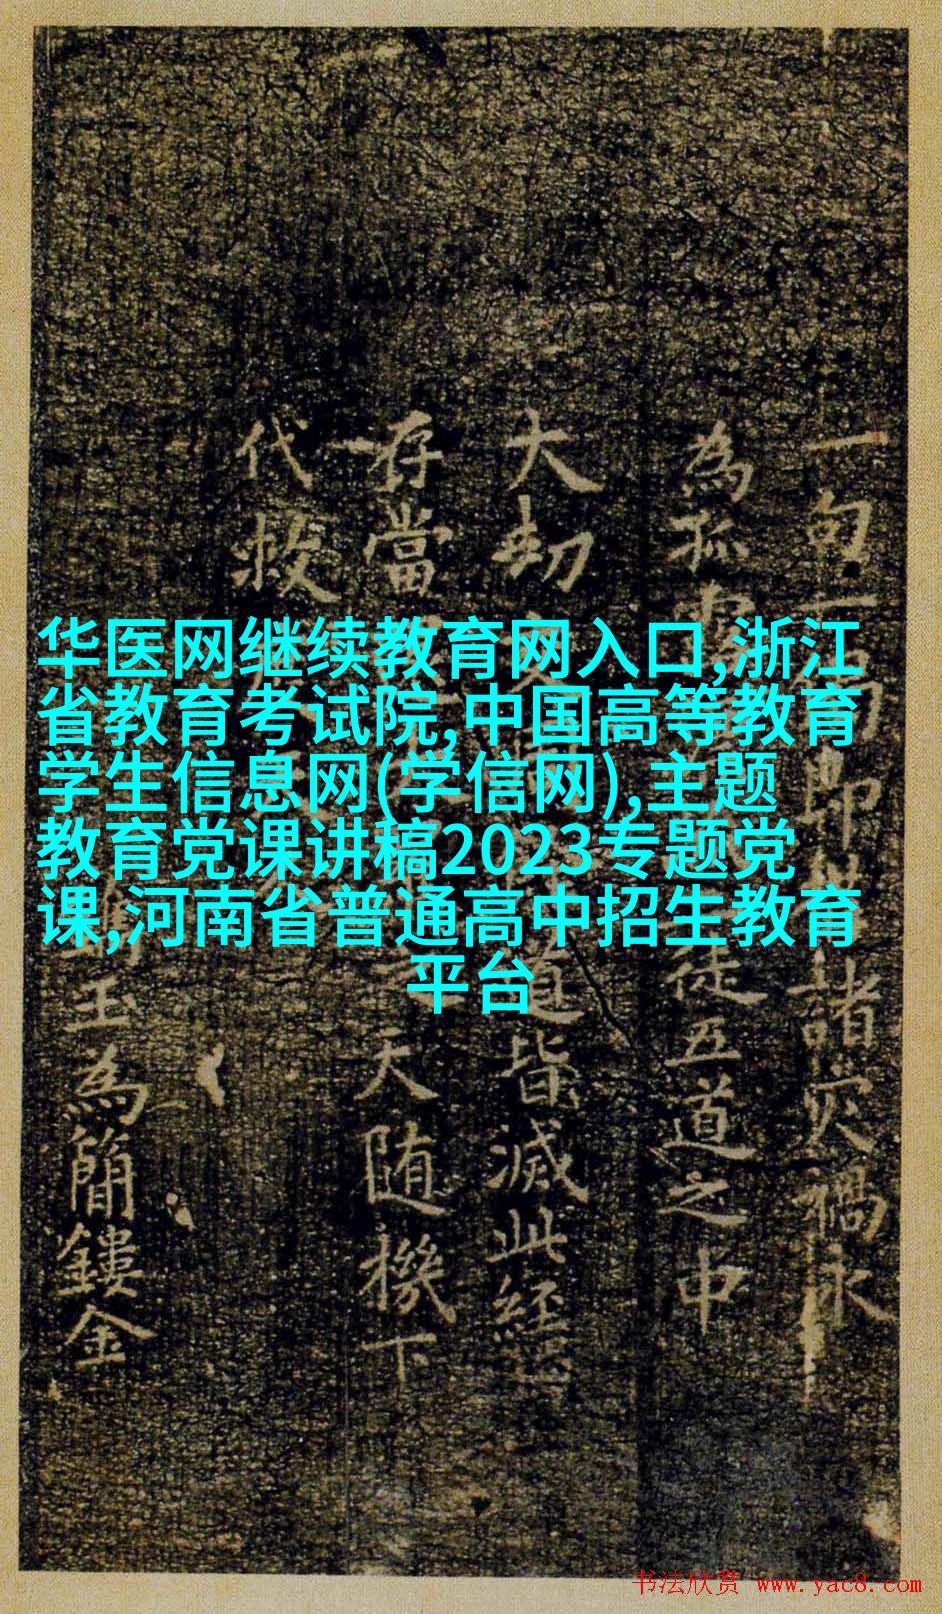 华医网继续教育网入口,浙江
省教育考试院,中国高等教育
学生信息网(学信网),主题
教育党课讲稿2023专题党
课,河南省普通高中招生教育
平台
一句一 即 諸灾禍永
為孤 徒五道之中
大劫 道皆滅此經
存當 天随機下
代救
玉為簡鏤金
书法欣赏 www.yac8.com